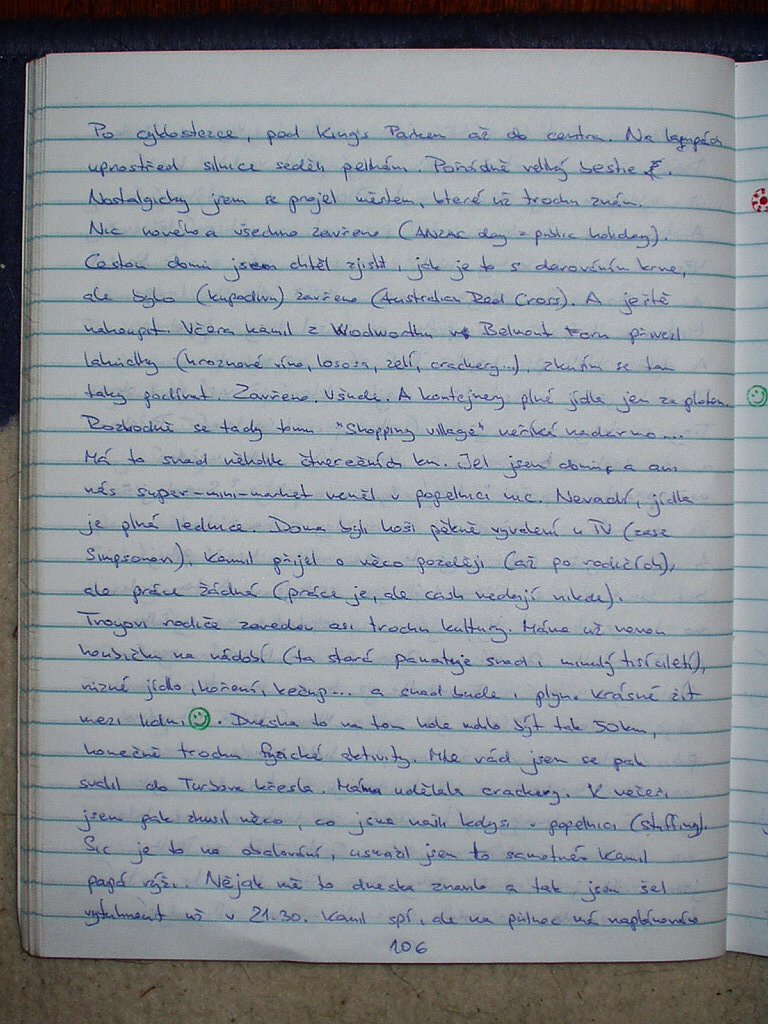 Po cyklostezce, pod King's Parkem až do centra. Na lampách
uprostřed silnice seděli pelikáni. Pořádně velký bestie.
Nostalgicky jsem se projel městem, které už trochu znám.
Nic nového a všechno zavřeno (ANZAC day = public holiday).
Cestou domů jsem chtěl zjistit, jak je to s darováním krve,
ale bylo (kupodivu) zavřeno (Australian Red Cross). A ještě
nakoupit. Včera Kamil z Woolworthu v Belmont Foru přivezl
lahůdky (hroznové víno, lososa, zelí, crackery...), zkusím se tam
taky podívat. Zavřeno. Všude. A kontejnery plné jídla jen za plotem.
Rozhodně se tady tomu "Shopping village" neříká nadarmo...
Má to snad několik čtverečních km. Jel jsem domů a ani
náš super-mini-market neměl v popelnici nic. Nevadí, jídla
je plná lednice. Doma byli hoši pěkně vyvalení u TV (zase
Simpsonovi), Kamil přijel o něco později (až po rodičích),
ale práce žádná (práce je, ale cash nedají nikde).
Troyovi rodiče zavedou asi trochu kultury. Máme už novou
houbičku na nádobí (ta stará pamatuje snad i minulý tisíciletí),
různé jídlo, koření, kečup... a snad bude i plyn. Krásné žít
mezi lidmi. Dneska to na tom kole mohlo být tak 50km,
konečně trochu fyzické aktivity. Moc rád jsem se pak
svalil do Turbova křesla. Máma udělala crackery. K večeři
jsem pak zkusil něco, co jsme našli kdysi v popelnici (stuffing).
Sic je to na obalování, usmažil jsem to samotné a Kamil
papá rýži. Nějak mě to dneska zmohlo a tak jsem šel
vytuhnout už v 21.30. Kamil spí, ale na půlnoc má naplánováno
106